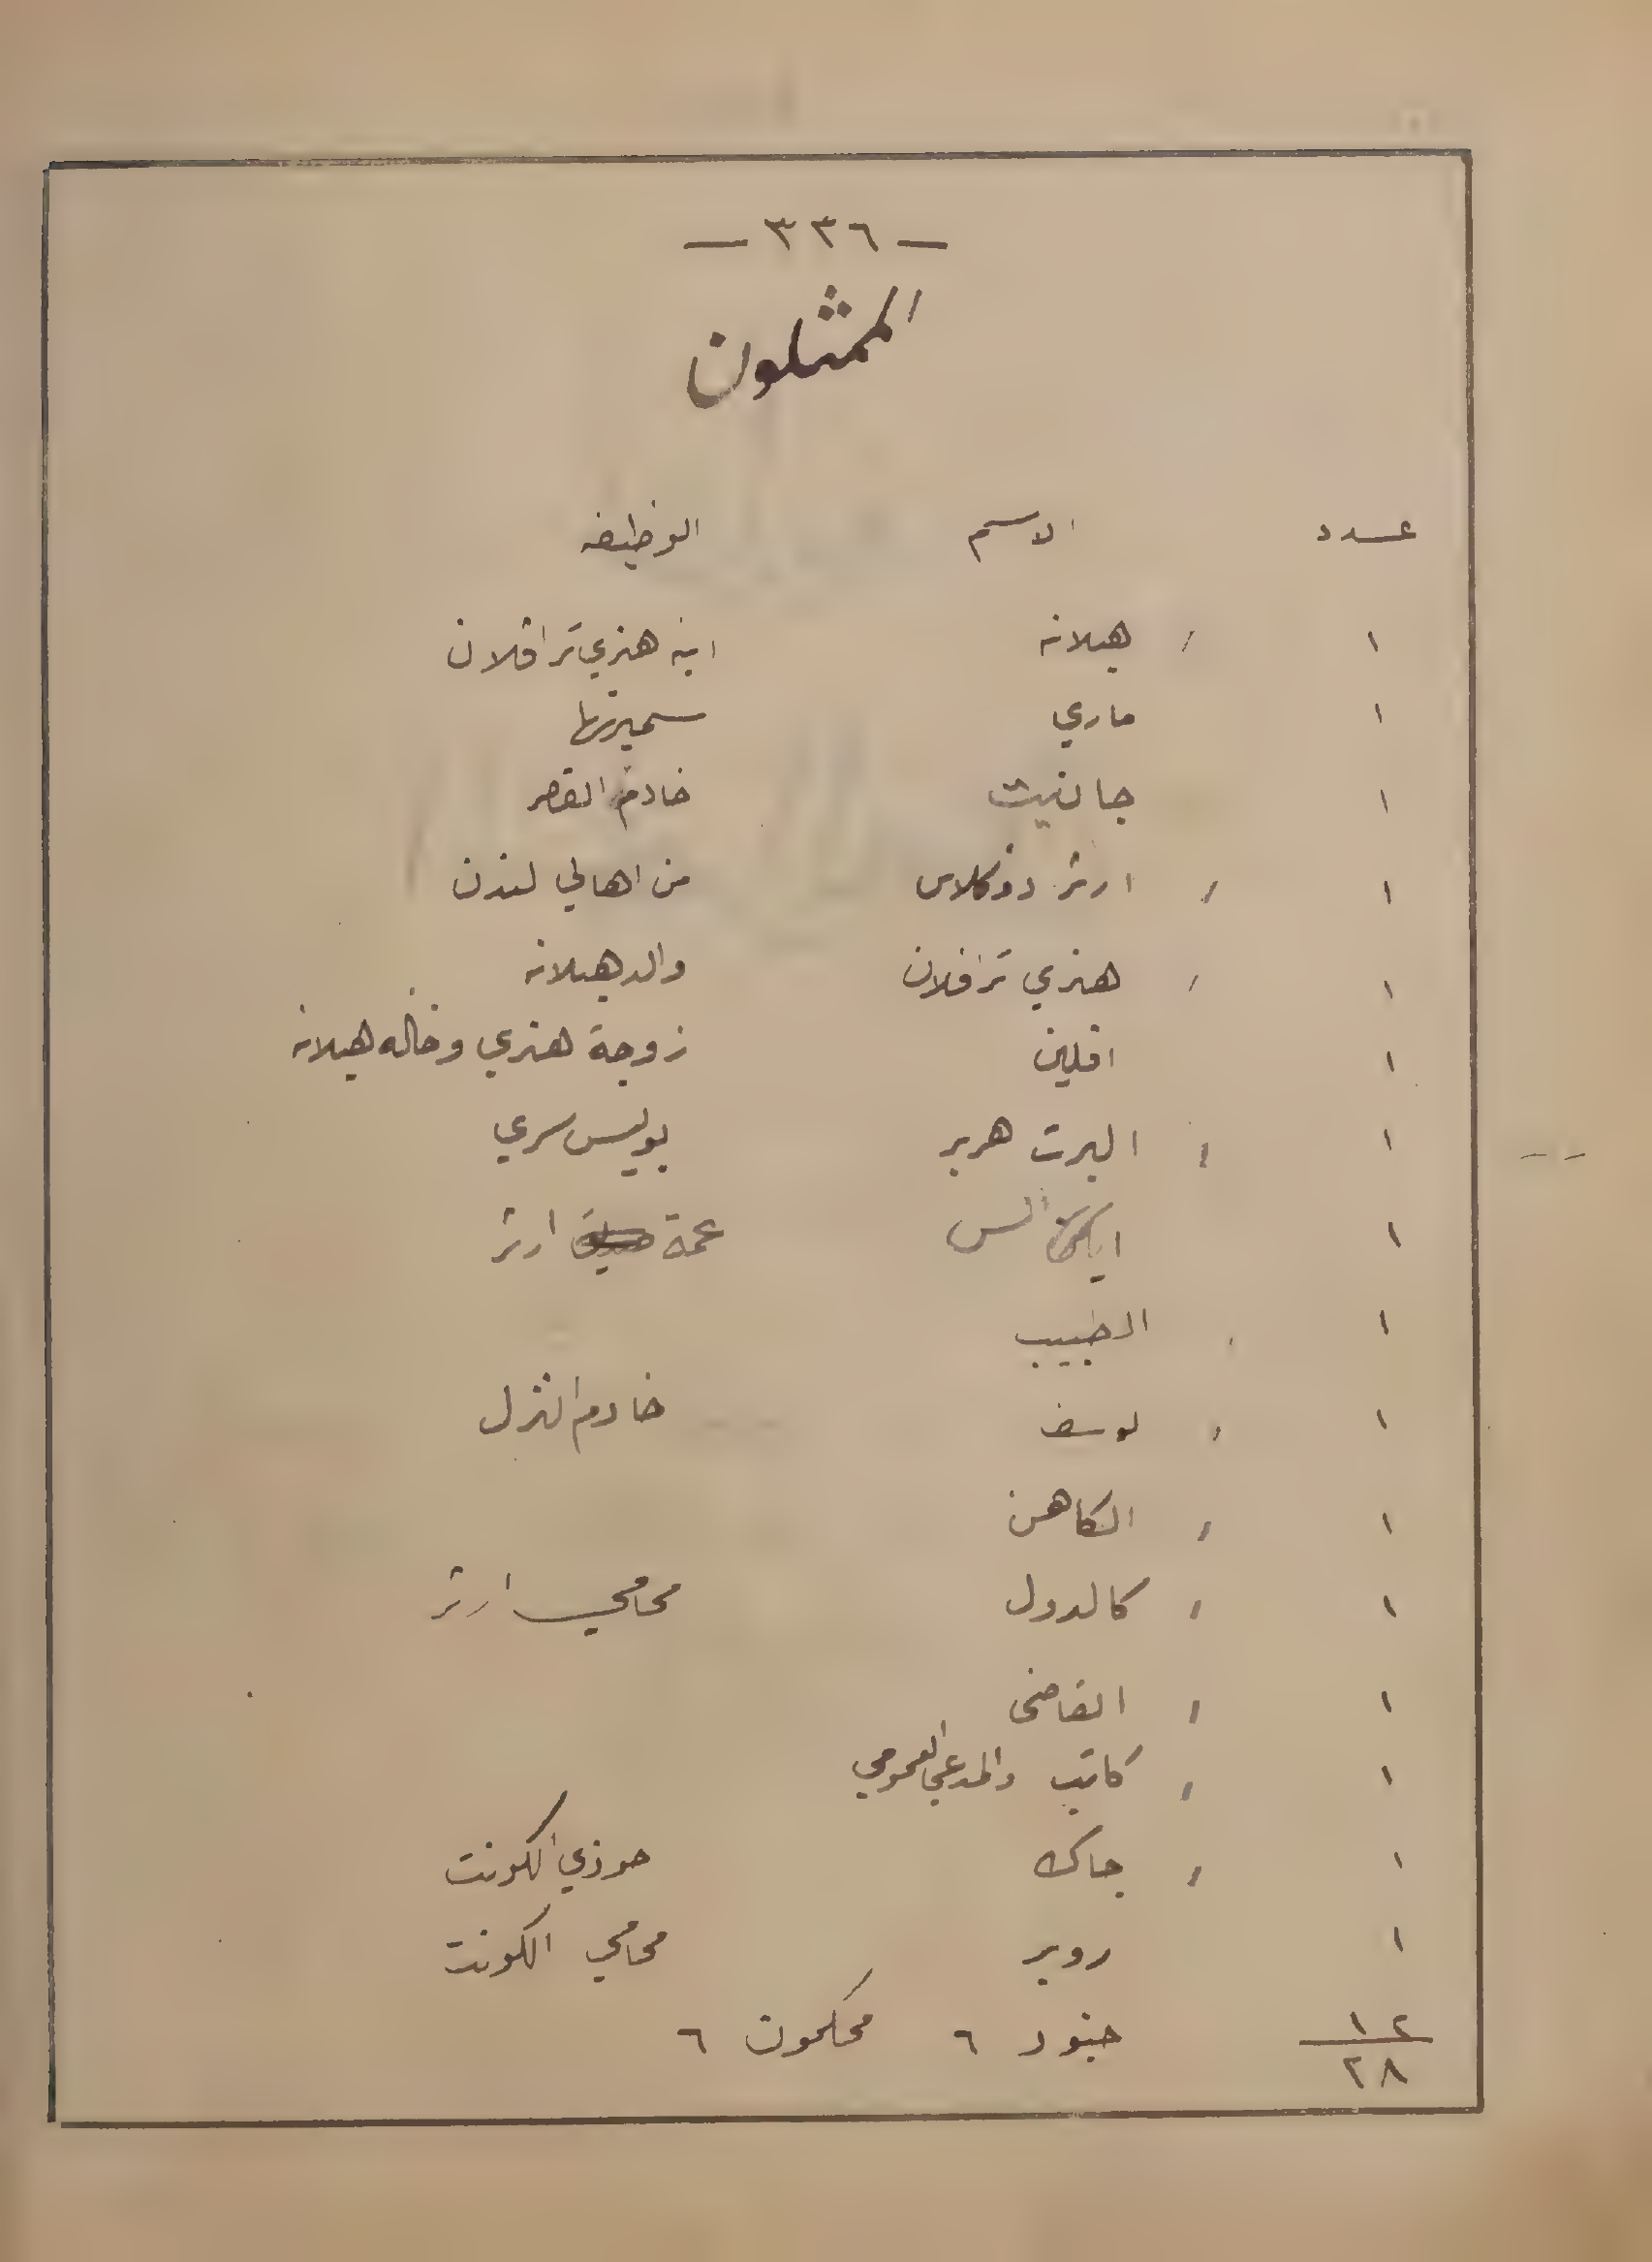 — ٣٣٦ —
الممثلون
عدد الاسم الوظيفه
١ هيلانه ابنه هنري ترافلان
١ ماري سميرتها
١ جانيت خادم القصر
١ ارثر دوكلاس من اهالي لندن
١ هنري ترافلان والد هيلانه
١ افلين زوجة هنري وخاله هيلانه
١ البرت هربر بوليس سري
١ الس عمة ارثر
١ الطبيب
١ يوسف خادم النزل
١ الكاهن
١ كالدول محامي ارثر
١ القاضي
١ كاتب والمدعي العمومي
١ جاك حوذي الكونت
١ روبر محامي الكونت
١٢ جنود ٦ محكمون ٦
٢٨